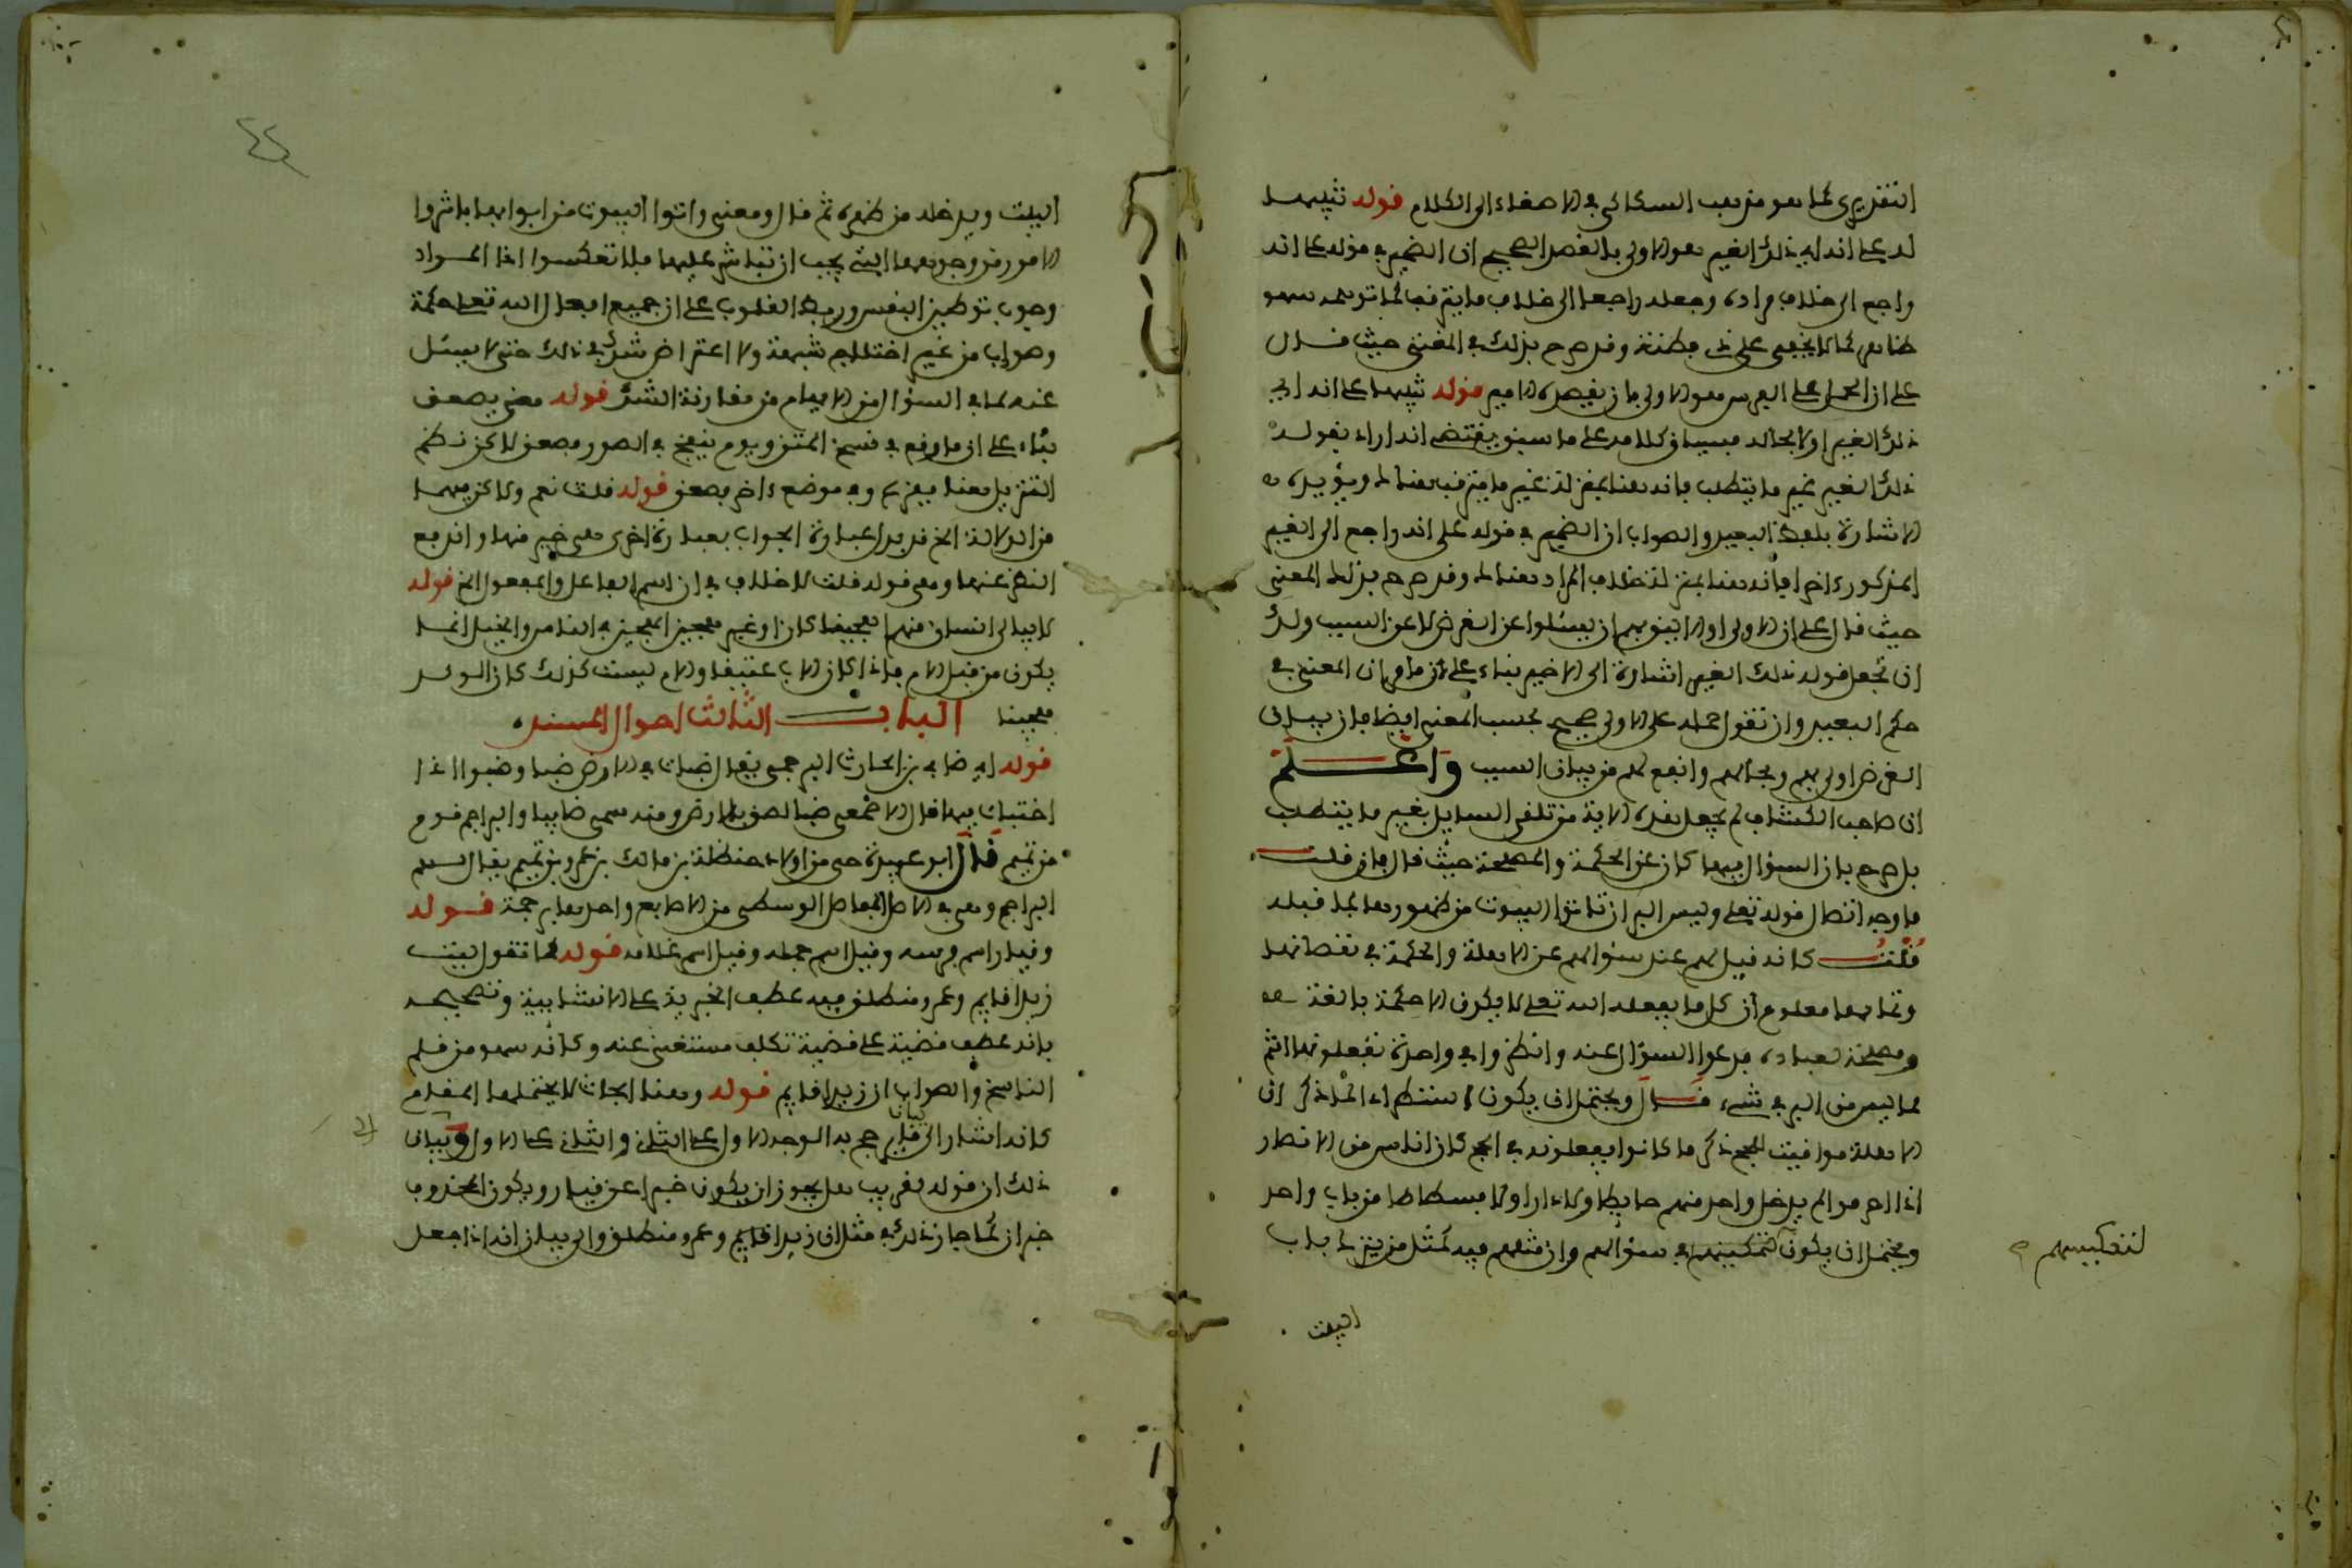 التقريري كما هو مذهب السكاكي في الاصغاء الى الكلام قوله تنبيها
له على انه اي ذلك الغير هو الاولى بالقصد الصحيح ان الضمير في قوله على انه
راجع الى خلاف مراده وجعله راجعا الى خلاف ما يترقب كما توهمه سهو
ظاهر كما لا يخفى على ذي فطنة وقد صرح بذلك في المغني حيث قال
على ان الحمل على الفرس هو الاولى بان يقصده الامير قوله تنبيها على انه اي
ذلك الغير اولى بحاله فسياق كلامه على ما سبق يقتضي انه اراد بقوله
ذلك الغير غير ما يتطلب فانه هنا بمنزلة غير ما يترقب هناك ويؤيده
الاشارة بلفظ البعيد والصواب ان الضمير في قوله على انه راجع الى الغير
المذكور اخرا فانه هنا بمنزلة خلاف المراد هناك وقد صرح بذلك المغني
حيث قال على ان الاولى او الاليق بهم ان يسئلوا عن الغرض لا عن السبب ولك
ان تجعل قوله ذلك الغير اشارة الى الاخير بناء على ان ما مر ان المعنى في
حكم البعيد وان تقول حمله على الاولى صحيح بحسب المعنى ايضا فان بيان
الغرض اولى بهم وبحالهم وانفع لهم من بيان السبب واعلم
ان صاحب الكشاف لم يجعل هذه الاية من تلقي السايل بغير ما يتطلب
بل صرح بان السؤال فيها كان عن الحكمة والمصلحة حيث قال فان قلت
ما وجه اتصال قوله تعلى وليس البر ان تاتوا البيوت من ظهورها بما قبله
قلت كانه قيل لهم عند سؤالهم عن الاهلة والحكمة في نقصانها
وتمامها معلوم ان كل ما يفعله الله تعلى لا يكون الا حكمة بالغة
ومصلحة لعباده فدعوا السؤال عنه وانظروا في واحدة تفعلونها انتم
مما ليس من البر في شيء قال ويحتمل ان يكون استطرادا لما ذكر ان
الاهلة مواقيت للحج ذكر ما كانوا يفعلونه في الحج كان اناس من الانصار
اذا احرموا لم يدخل واحد منهم حايطا ولا دارا ولا فسطاطا من باب واحد
ويحتمل ان يكون في سؤالهم وان مثلهم فيه كمثل من يترك باب
لتعكيسهم
البيت
البيت ويدخله من ظهره ثم قال ومعنى واتوا البيوت من ابوابها باشروا
الامور من وجوهها التي يجب ان تباشر عليها فلا تعكسوا اذا المراد
وجوب توطين النفس وربط القلوب على ان جميع افعال الله تعلى حكمة
وصواب من غير اختلاج شبهة ولا اعتراض شك في ذلك حتى لا يسئل
عنه لما في السؤال من الايهام من مقارنة الشك قوله معنى يصعق
بناء على ان ما وقع في نسخ المتن ويوم ينفخ في الصور فصعق لاكن نظم
التنزيل هنا ففزع وفي موضع ءاخر فصعق قوله قلت نعم ولاكن فيهما
من الدلالة الخ قد بدل عبارة الجواب بعبارة اخرى هي خير منها واندفع
النظر عنها وهي قوله قلت لا خلاف في ان اسم الفاعل والمفعول الخ قوله
لا يبالى انسان منهم اهجينا كان او غير هجين الهجين في الناس والخيل انما
يكون من قبل الام فاذا كان الاب عتيقا والام ليست كذلك كان الولد
هجينا الباب الثالث احوال المسند
قوله اي ضابئ بن الحارث البرجمي يقال ضبات في الارض ضبا وضبوا اذا
اختبات فيها قال الاصمعي ضبا لصق بالارض ومنه سمي ضابيا والبراجم قوم
من تميم قال ابو عبيدة حي من اولاد حنظلة بن مالك بن عمرو بن تميم يقال لهم
البراجم وهي في الاصل المفاصل الوسطى من الاصابع واحدها برجمة قوله
وقيار اسم فرسه وقيل اسم جمله وقيل اسم غلامه قوله كما تقول ليت
زيدا قايم وعمرو منطلق فيه عطف الخبرية على الانشايية وتصحيحه
بانه عطف قضية على قضية تكلف مستغنى عنه وكانه سهو من قلم
الناسخ والصواب ان زيدا قايم قوله وهنا ابحاث لا يحتملها المقام
كانه اشار الى ما يرجح به الوجه الاول على الثاني والثاني على الاول وبيان
ذلك ان قوله لغريب هل يجوز ان يكون خبرا عن قيار ويكون المحذوف
خبر ان كما جاز ذلك في مثل ان زيدا قايم وعمرو منطلق والى بيان انه اذا جعل